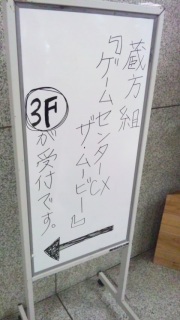 蔵方組
『ゲームセンターCX
ザ・ムービー』
3Fが受付です。